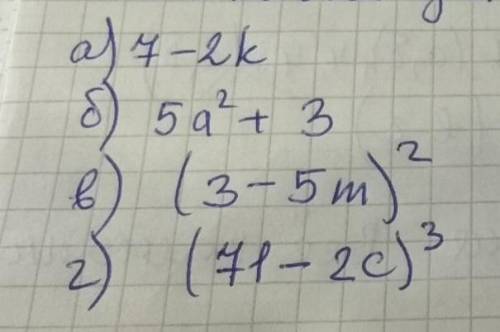 а) 7 - 2k
б) 5a² + 3
в) (3 - 5m)²
г) (71 - 2c)³